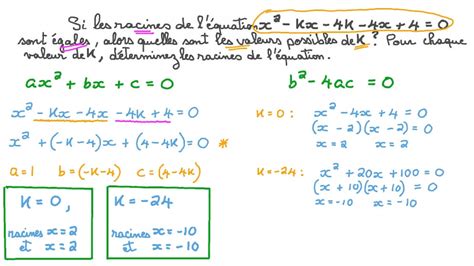 Si les racines de l'équation x² - Kx - 4K - 4x + 4 = 0
sont égales, alors quelles sont les valeurs possibles de K ? Pour chaque
valeur de K, déterminez les racines de l'équation.
ax² + bx + c = 0
b² - 4ac = 0
x² - Kx - 4x - 4K + 4 = 0
x² + (-K-4)x + (4-4K) = 0 *
a = 1 b = (-K-4) c = (4-4K)
K = 0,
racines x = 2
et x = 2
K = -24
racines x = -10
et x = -10
K = 0 : x² - 4x + 4 = 0
(x - 2)(x - 2) = 0
x = 2 x = 2
K = -24 : x² + 20x + 100 = 0
(x + 10)(x + 10) = 0
x = -10 x = -10